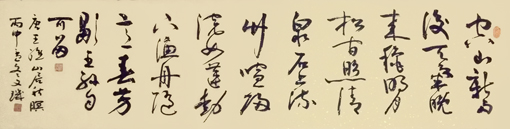 空山新雨
後天气晚
来秋明月
松间照清
泉石上流
竹喧归
浣女莲动
下渔舟随
意春芳
歇王孙自
可留
唐王维山居秋暝
丙申